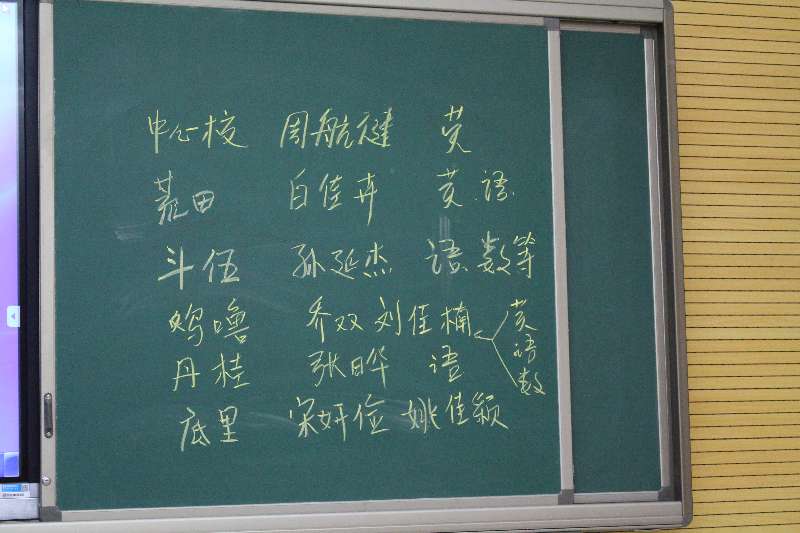 中心校 周航健 英
荒田 白佳卉 英.语.
斗伍 孙延杰 语.数等
鸡噜 乔双 刘佳楠 英 语 数
丹桂 张晔 语
底里 宋妍俭 姚佳颖